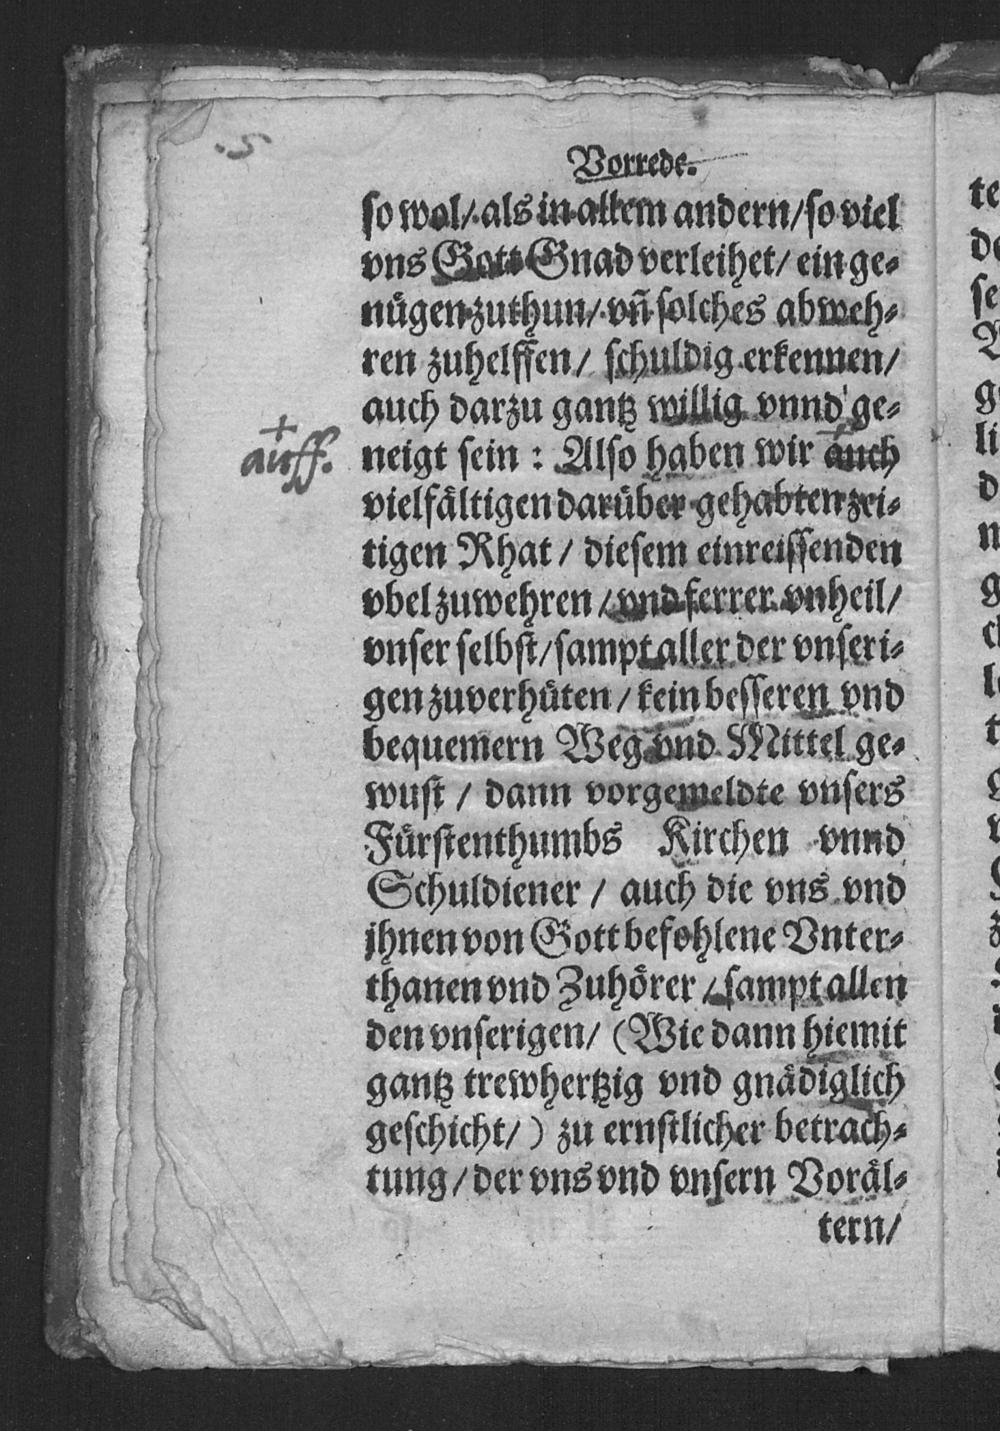 .5
Vorrede.
so wol/ als in allem andern/ so viel
vns Gott Gnad verleihet/ ein ge⸗
nuͤgen zuthun/ vñ solches abweh⸗
ren zuhelffen/ schuldig erkennen/
auch darzu gantz willig vnnd ge⸗
neigt sein : Also haben wir auch
+
auff.
vielfaͤltigen daruͤber gehabten zei⸗
tigen Rhat / diesem einreissenden
vbel zuwehren / vnd ferrer vnheil/
vnser selbst/ sampt aller der vnseri⸗
gen zuverhuͤten / kein besseren vnd
bequemern Weg vnd Mittel ge⸗
wust / dann vorgemeldte vnsers
Fuͤrstenthumbs Kirchen vnnd
Schuldiener / auch die vns vnd
jhnen von Gott befohlene Vnter⸗
thanen vnd Zuhoͤrer / sampt allen
den vnserigen/ (Wie dann hiemit
gantz trewhertzig vnd gnaͤdiglich
geschicht/ ) zu ernstlicher betrach⸗
tung / der vns vnd vnsern Voraͤl⸗
tern/